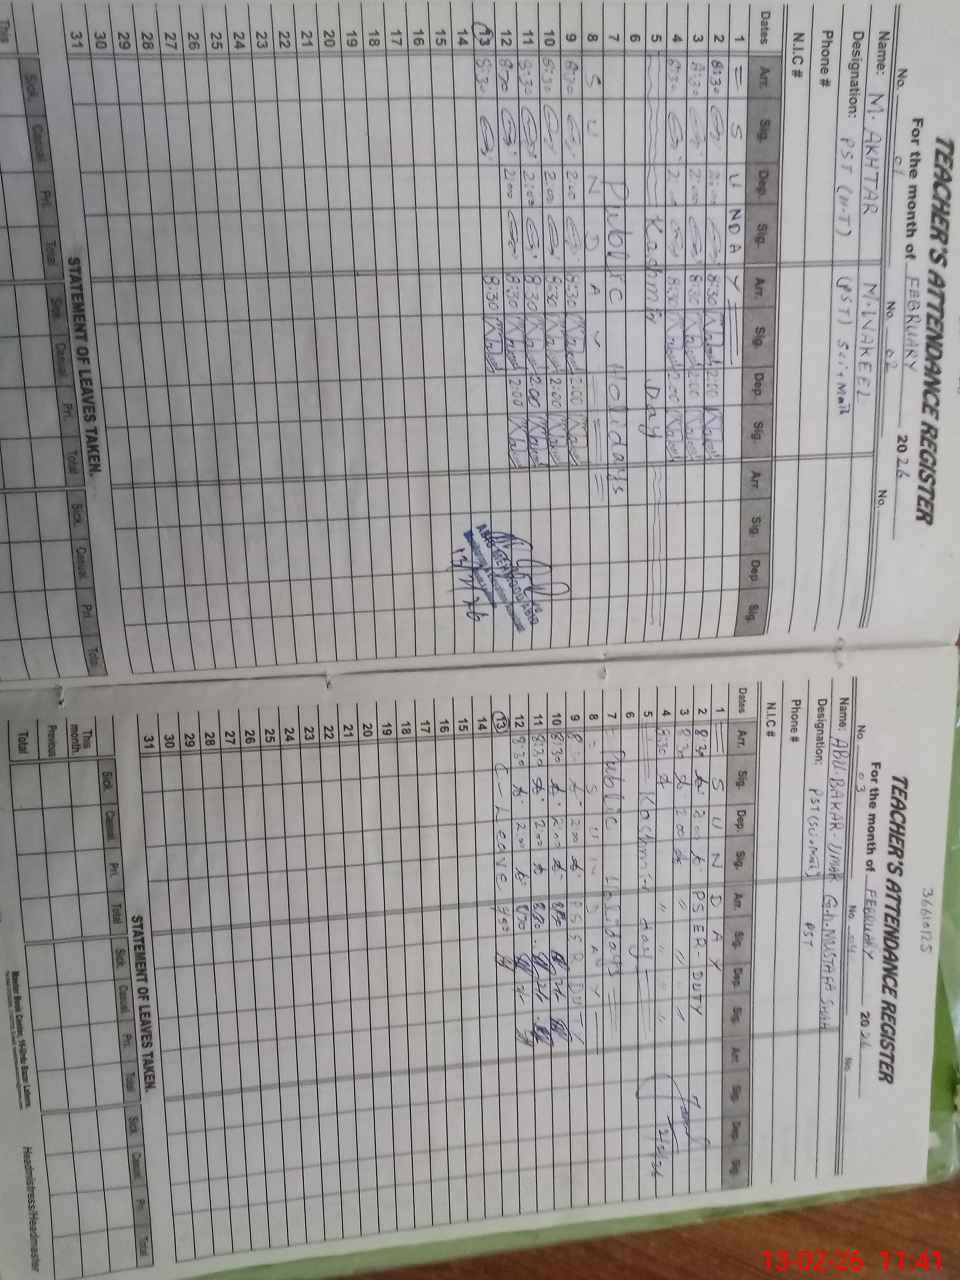 TEACHER'S ATTENDANCE REGISTER
For the month of FEBRUARY 2026
No. 01 No. 02 No.
Name: M. AKHTAR M. WAKEEL
Designation: PST (M.T) (PST) Sci-Math
Phone #
N.I.C #
Dates Arr. Sig. Dep. Sig. Arr. Sig. Dep. Sig. Arr. Sig. Dep. Sig.
1 = S U N D A Y =
2 8:30 2:00 8:30 2:00
3 8:30 2:00 8:30 2:00
4 8:30 2:00 8:30 2:00
5 Kashmir Day
6
7 Public Holidays
8 S U N D A Y
9 8:30 2:00 8:30 2:00
10 8:30 2:00 8:30 2:00
11 8:30 2:00 8:30 2:00
12 8:30 2:00 8:30 2:00
13 8:30 8:30
14
15
16
17
18
19
20
21
22
23
24
25
26
27
28
29
30
31
STATEMENT OF LEAVES TAKEN.
Sick. Casual Pri. Total Sick. Casual Pri. Total Sick. Casual Pri. Total
This
36610125
TEACHER'S ATTENDANCE REGISTER
For the month of FEBRUARY 2026
No. 03 No. 04 No.
Name: ABU-BAKAR-UMAR G.M. MUSTAFA SHAH
Designation: PST (Sci-Math) PST
Phone #
N.I.C #
Dates Arr. Sig. Dep. Sig. Arr. Sig. Dep. Sig. Arr. Sig. Dep. Sig.
1 = S U N D A Y
2 8:30 2:00 PSER-DUTY
3 8:30 2:00 " " "
4 8:30 " " "
5 Kashmir day
6
7 Public Holidays
8 = S U N D A Y
9 2:00 PSER DUTY
10 8:30 2:00
11 8:30 2:00
12 8:30 2:00
13 C-Leave
14
15
16
17
18
19
20
21
22
23
24
25
26
27
28
29
30
31
STATEMENT OF LEAVES TAKEN.
Sick. Casual. Pri. Total Sick. Casual Pri. Total Sick. Casual. Pri. Total
This month.
Previous
Total
Headmistress/Headmaster
13-02-26 11:41